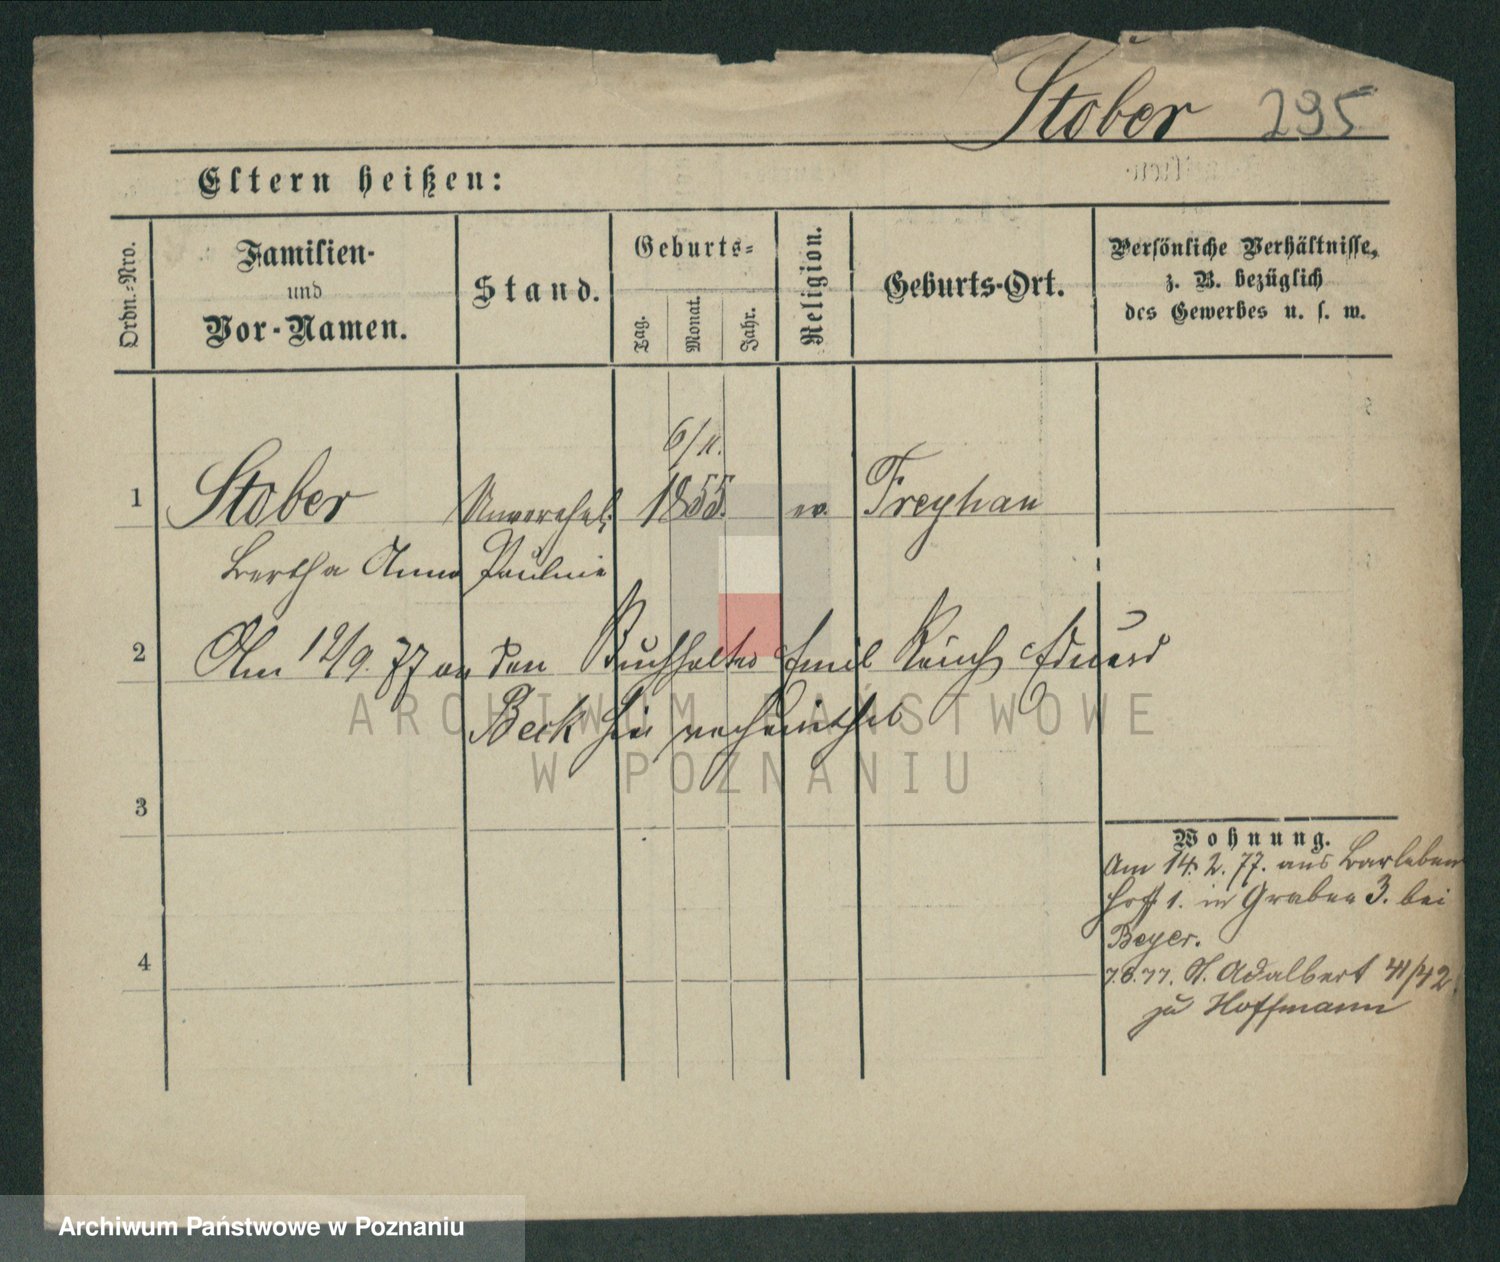 Stober 295
Eltern heißen:
Ordn.-Nro.
Familien-
und
Vor-Namen.
Stand.
Geburts-
Tag.
Monat.
Jahr.
Religion.
Geburts-Ort.
Persönliche Verhältnisse,
z. B. bezüglich
des Gewerbes u. s. w.
6/11.
1 Stober Unverehel. 1855. ev. Freyhan
Bertha Anna Pauline
2 Am 12/9. 77 an den Buchhalter Emil Eduard
Beck hier verheirathet
ARCHIWUM PAŃSTWOWE
W POZNANIU
3
Wohnung.
Am 14. 2. 77. aus Barleben
hoff 1. in Graben 3. bei
Beyer.
4
7.8.77. St. Adalbert 41/42
zu Hoffmann
Archiwum Państwowe w Poznaniu